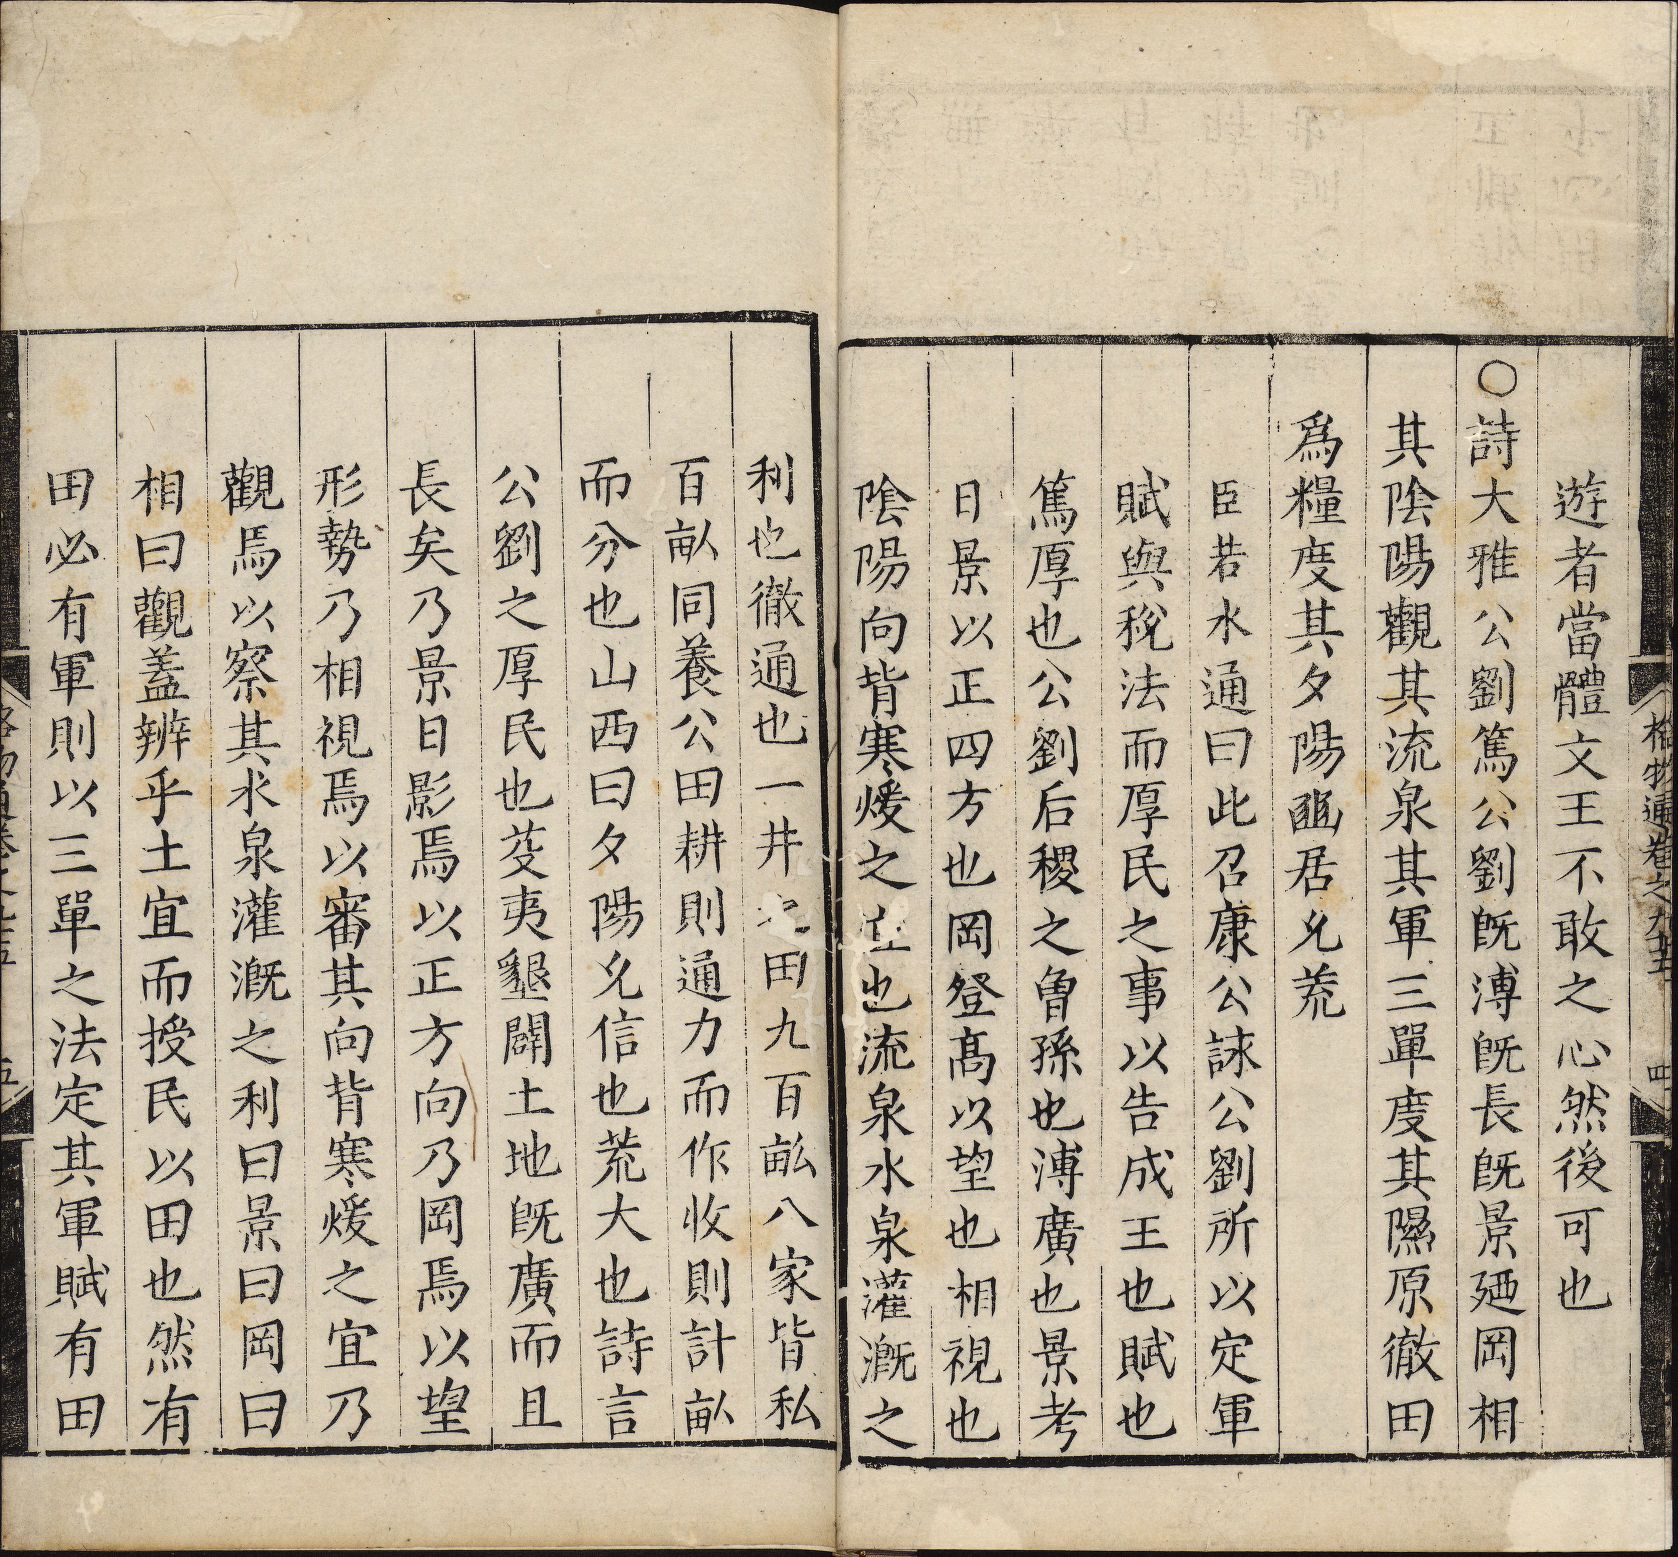 遊者當體文王不敢之心然後可也
○詩大雅公劉篤公劉旣溥旣長旣景廼岡相
其陰陽觀其流泉其軍三單度其隰原徹田
爲糧度其夕陽豳居允荒
臣若水通曰此召康公誄公劉所以定軍
賦與稅法而厚民之事以告成王也賦也
篤厚也公劉后稷之曾孫也溥廣也景考
日景以正四方也岡登高以望也相視也
陰陽向背寒煖之宜也流泉水泉灌漑之
利也徹通也一井之田九百畝八家皆私
百畝同養公田耕則通力而作收則計畝
而分也山西曰夕陽允信也荒大也詩言
公劉之厚民也芟夷墾闢土地旣廣而且
長矣乃景日影焉以正方向乃岡焉以望
形勢乃相視焉以審其向背寒煖之宜乃
觀焉以察其水泉灌漑之利曰景曰岡曰
相曰觀蓋辨乎土宜而授民以田也然有
田必有軍則以三單之法定其軍賦有田
格物通卷之九十五 四